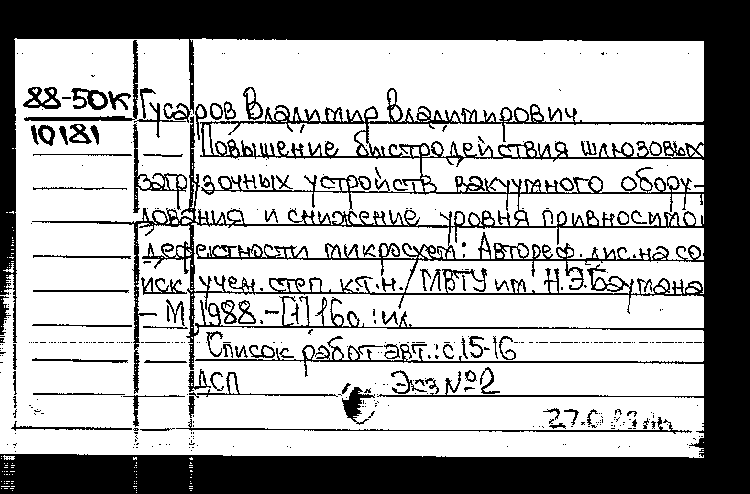 88-50К Гусаров Владимир Владимирович.
10181 Повышение быстродействия шлюзовых
загрузочных устройств вакуумного обору-
дования и снижение уровня привносимой
дефектности микросхем: Автореф. дис. на со
иск. учен. степ. к.т.н. / МВТУ им. Н.Э.Баумана
- М, 1988. - [1] 16с. : ил.
Список работ авт.: с.15-16
ДСП Экз №2